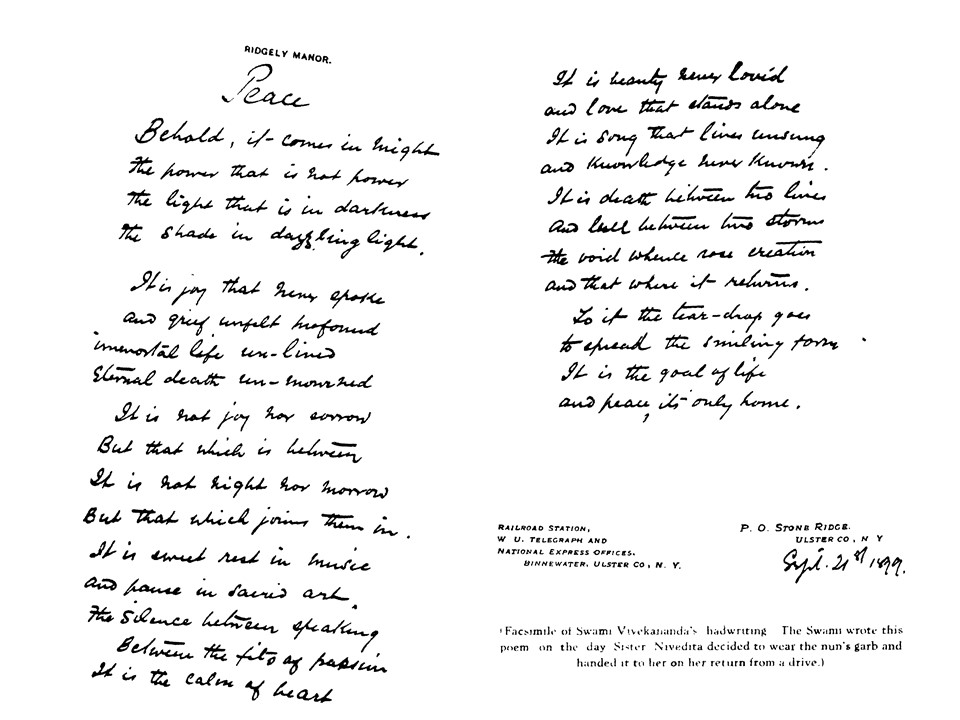 RIDGELY MANOR.
Peace
Behold, it comes in might
the power that is not power
the light that is in darkness
the shade in dazzling light.
It is joy that never spoke
and grief unfelt profound
immortal life un-lived
Eternal death un-mourned
It is not joy nor sorrow
But that which is between
It is not night nor morrow
But that which joins them in.
It is sweet rest in music
and pause in sacred art.
The silence between speaking
Between the fits of passion
It is the calm of heart
It is beauty never loved
and love that stands alone
It is song that lives unsung
and knowledge never known.
It is death between two lives
and lull between two storms
the void whence rose creation
and that where it returns.
To it the tear-drop goes
to spread the smiling form
It is the goal of life
and peace, its only home.
RAILROAD STATION,
W U. TELEGRAPH AND
NATIONAL EXPRESS OFFICES.
BINNEWATER, ULSTER CO, N. Y.
P. O. STONE RIDGE.
ULSTER CO, N Y
Sept. 21st 1899.
(Facsimile of Swami Vivekananda's hadwriting The Swami wrote this
poem on the day Sister Nivedita decided to wear the nun's garb and
handed it to her on her return from a drive.)